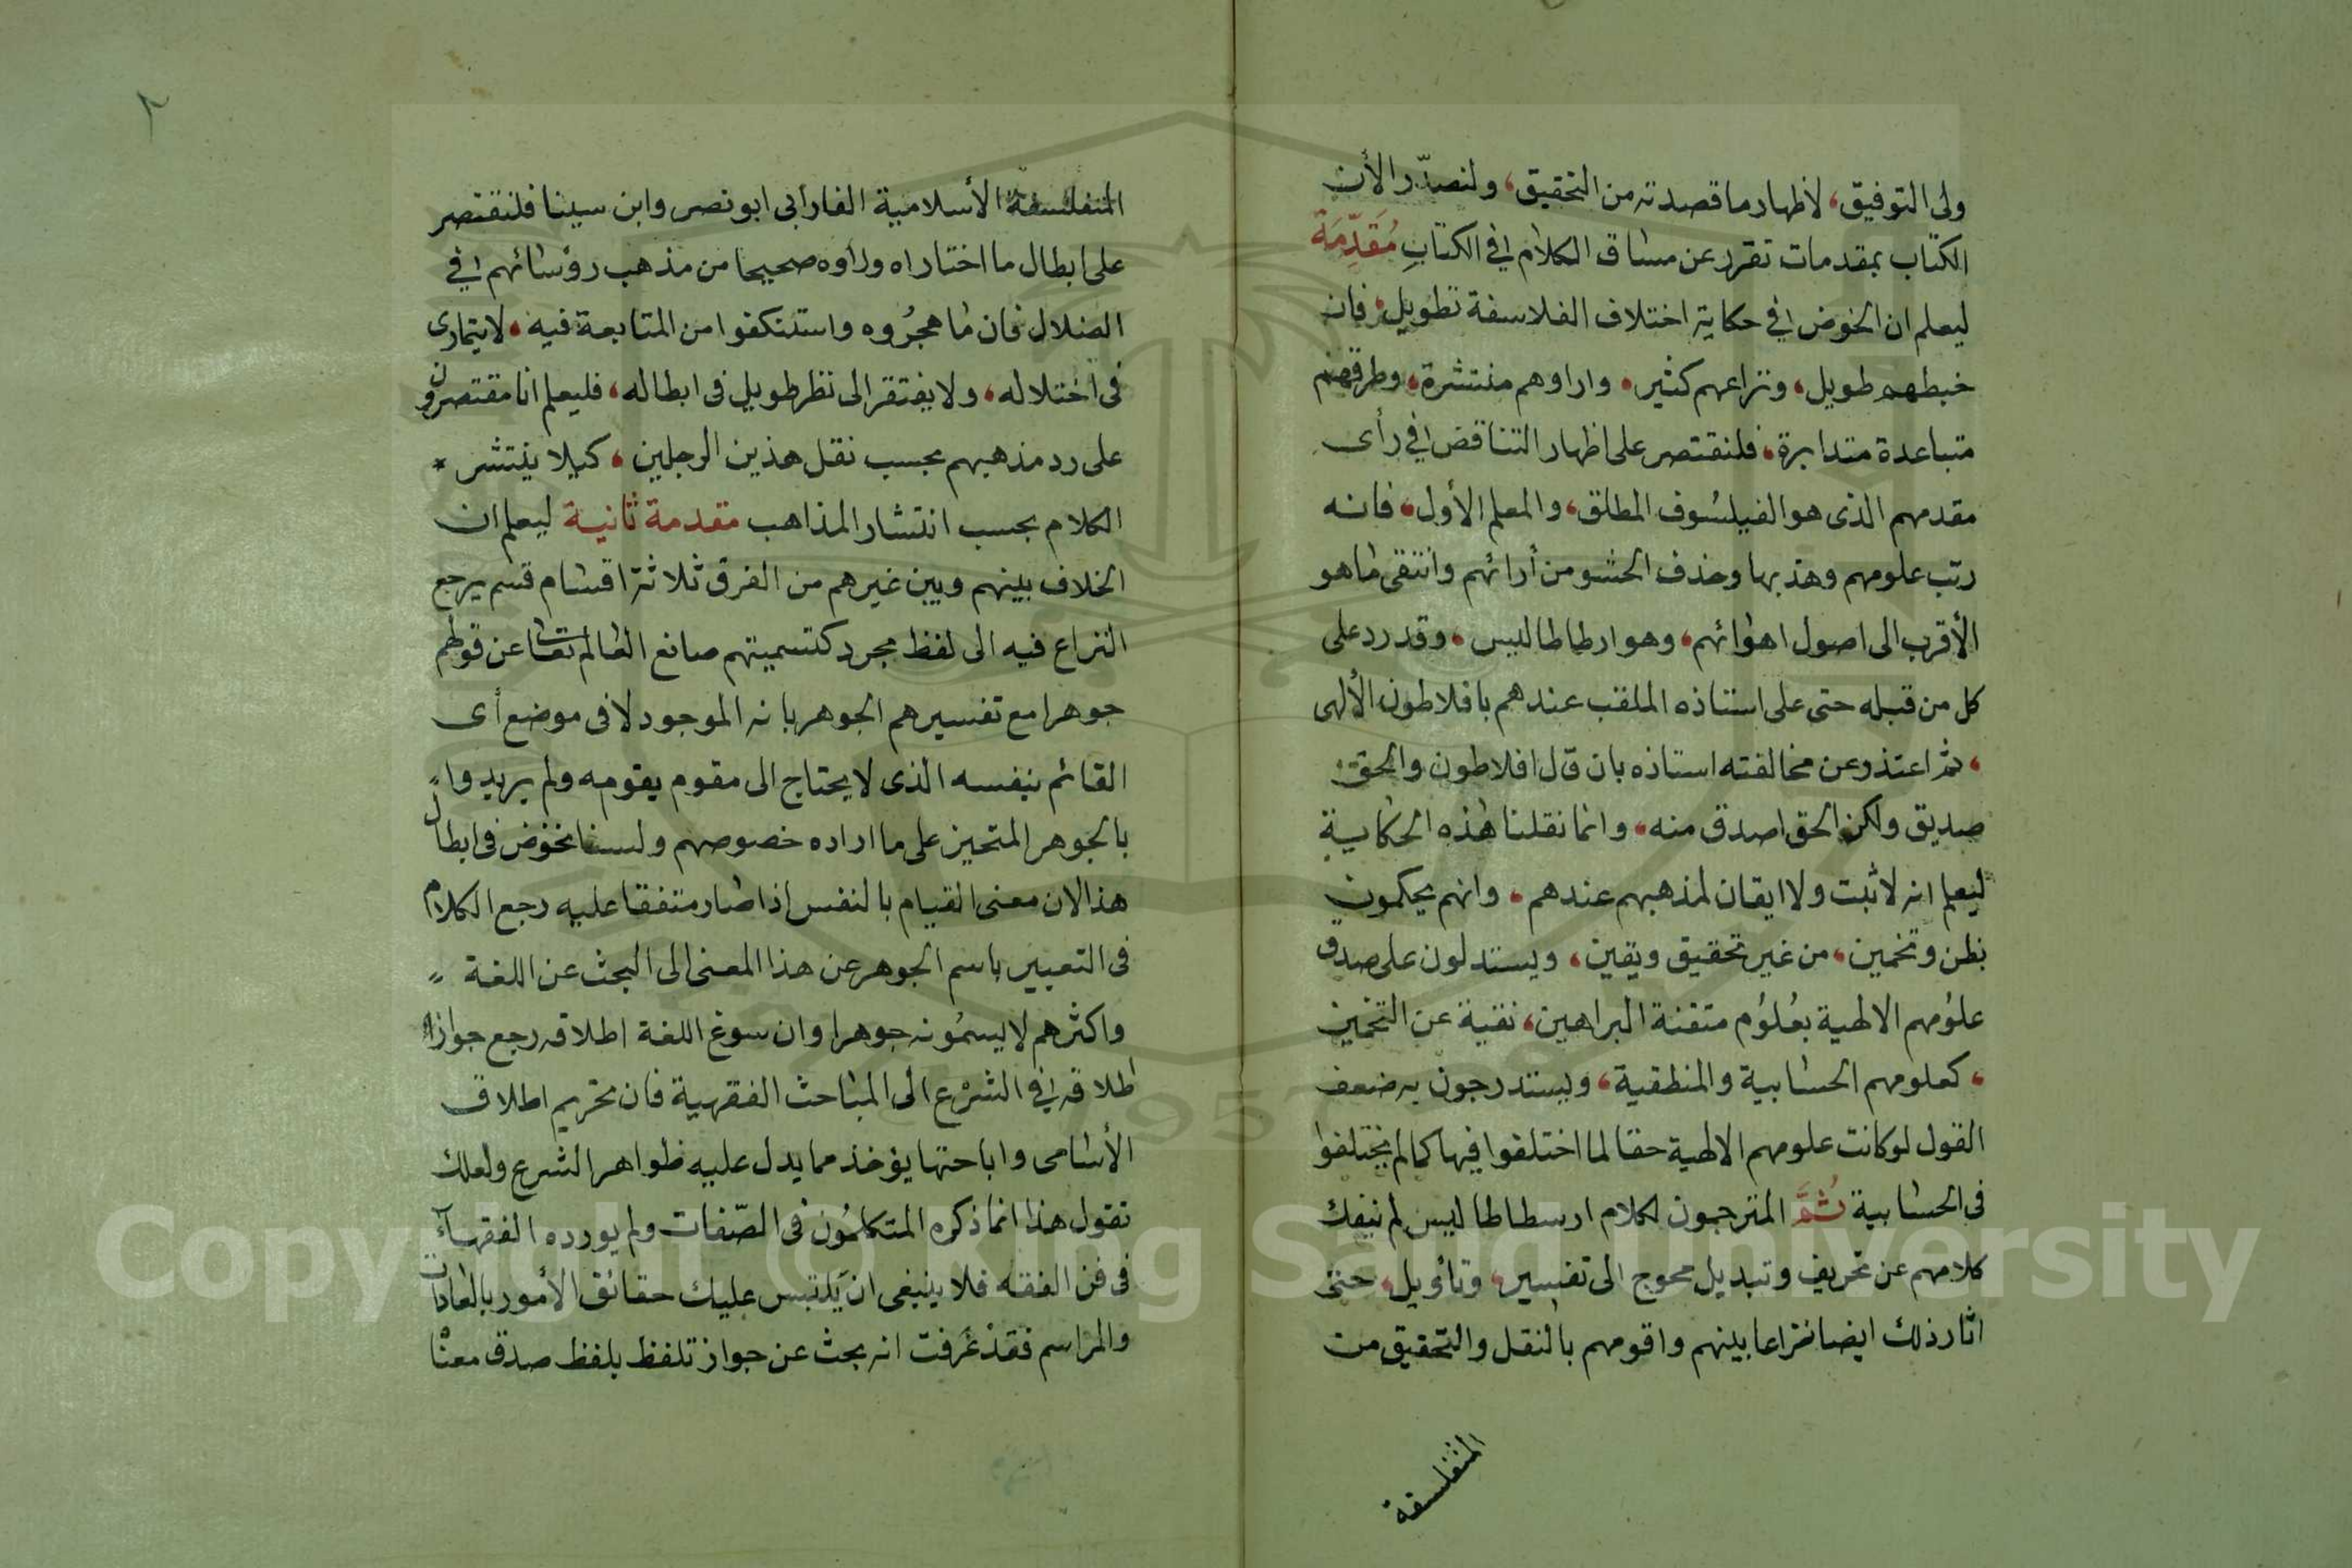 ولى التوفيق، لاظهار ما قصدته من التحقيق، ولنصدّر الأن
الكتاب بمقدمات تقرر عن مساق الكلام في الكتابِ مُقَدِّمَة
ليعلم ان الخوض في حكاية اختلاف الفلاسفة تطويل، فان
خبطهم طويل، ونزاعهم كثير، واراوهم منتشرة، وطرقهم
متباعدة متدابرة، فلنقتصر على اظهار التناقض في رأى
مقدمهم الذى هو الفيلسُوف المطلق، والمعلم الأول، فانه
رتب علومهم وهذبها وحذف الحشو من أرائهم وانتقى ما هو
الأقرب الى اصول اهوائهم، وهو ارطاطاليس، وقد رد على
كل من قبله حتى على استاذه الملقب عندهم بافلاطون الألهى
، ثم اعتذر عن مخالفته استاذه بان قال افلاطون والحق
صديق ولكن الحق اصدق منه، وانما نقلنا هذه الحكاية
ليعلم انه لا ثبت ولا ايقان لمذهبهم عندهم، وانهم يحكمون
بظن وتخمين، من غير تحقيق ويقين، ويستدلون على صدق
علوُمهم الالهية بعُلوُم متقنة البراهين، نقية عن التخمين
، كعلومهم الحسابية والمنطقية، ويستدرجون به ضعف
القول لو كانت علومهم الالهية حقا لما اختلفوا فيها كما لم يختلفوا
في الحسابية ثُمَّ المترجمون لكلام ارسطاطاليس لم ينفك
كلامهم عن تحريف وتبديل محوج الى تفسير، وتاويل، حتى
اثار ذلك ايضا نزاعا بينهم واقومهم بالنقل والتحقيق من
المتفلسفة
٢
المتفلسفة الأسلامية الفارابى ابو نصر وابن سينا فلنقتصر
على ابطال ما اختاراه وراوه صحيحا من مذهب رؤسائهم في
الضلال فان ما هجرُوه واستنكفوا من المتابعة فيه، لا يتمارى
فى اختلاله، ولا يفتقر الى نظر طويل فى ابطاله، فليعلم انا مقتصرون
على رد مذهبهم بحسب نقل هذين الرجلين، كيلا ينتشر
الكلام بحسب انتشار المذاهب مقدمة ثانية ليعلم ان
الخلاف بينهم وبين غيرهم من الفرق ثلاثة اقسام قسم يرجع
النزاع فيه الى لفظ مجرد كتسميتهم صانع العالم تعالى عن قولهم
جوهرا مع تفسيرهم الجوهر بانه الموجود لا فى موضع أى
القائم بنفسه الذى لا يحتاج الى مقوم يقومه ولم يريدوا
بالجوهر المتحيز على ما اراده خصوصهم ولسنا نخوض فى ابطال
هذا لان معنى القيام بالنفس اذا صار متفقا عليه رجع الكلام
فى التعبير باسم الجوهر عن هذا المعنى الى البحث عن اللغة
واكثرهم لا يسمُونه جوهرا وان سوغ اللغة اطلاقه رجع جواز ا
طلاقه في الشرْع الى المباحث الفقهية فان تحريم اطلاق
الأسامى واباحتها يؤخذ مما يدل عليه ظواهر الشرع ولعلك
تقول هذا انما ذكره المتكلمُون فى الصّفات ولم يورده الفقهاء
فى فن الفقه فلا ينبغى ان يلتبس عليك حقائق الأمور بالعادات
والمراسم فقدْ عَرفت انه بحث عن جواز تلفظ بلفظ صدق معنا
Copyright © King Saud University
1957